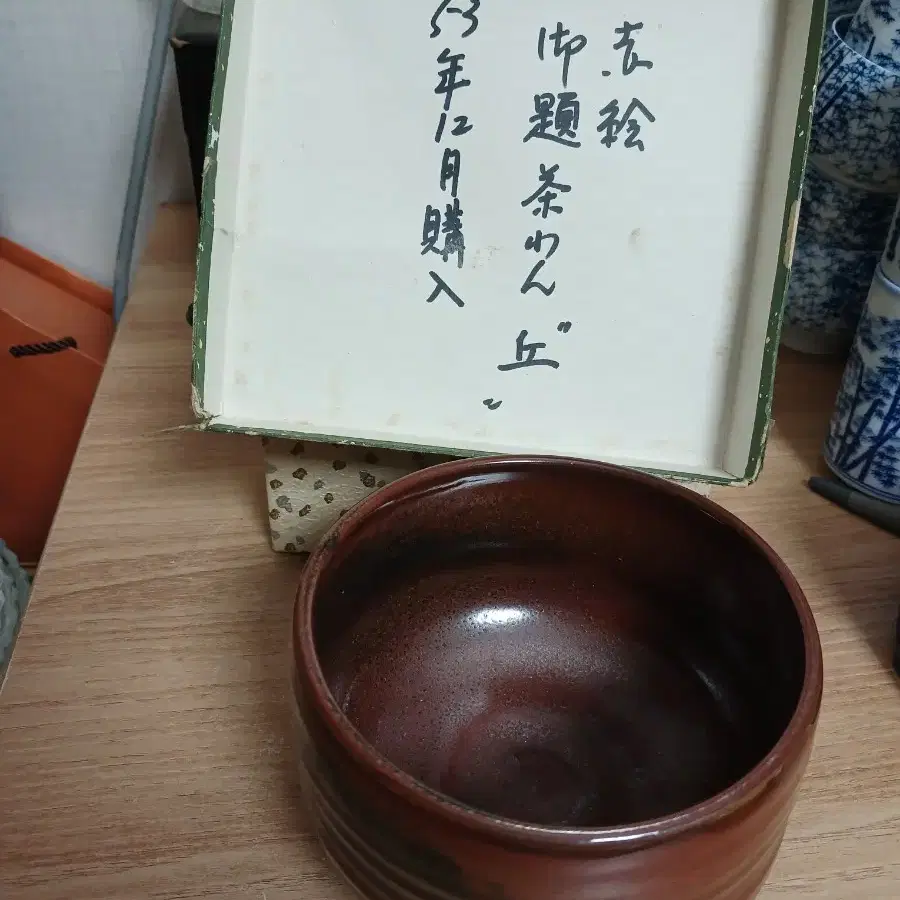 絵
御題 茶わん "丘"
53年12月購入